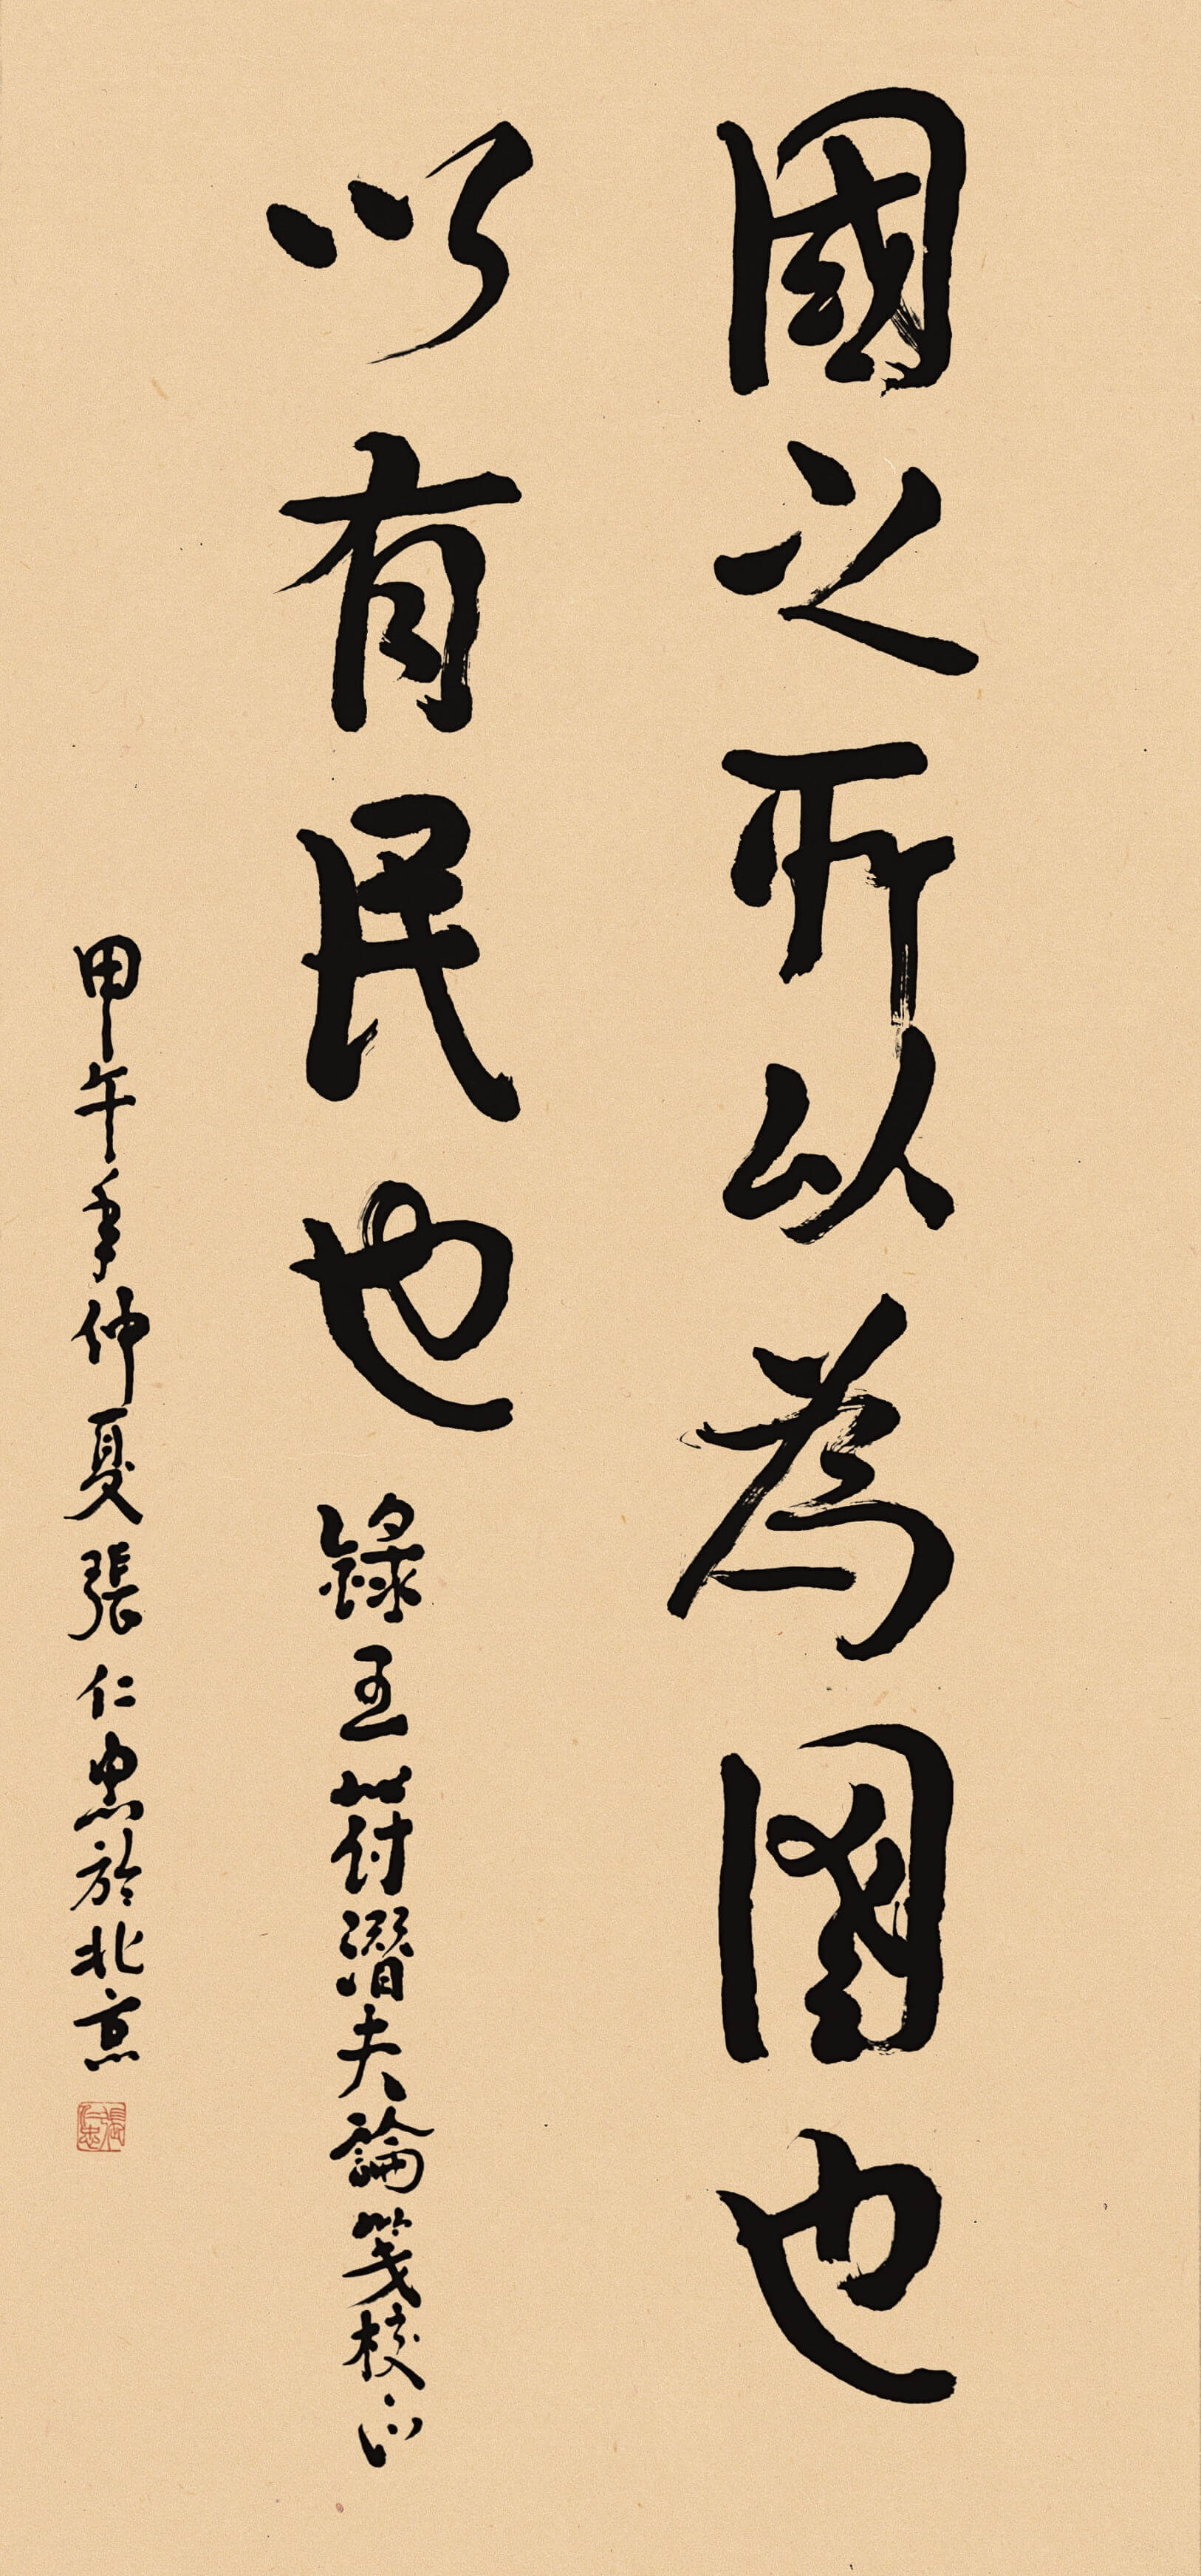 國之所以為國也
以有民也
錄王符潛夫論箋校正
甲午年仲夏張仁忠於北京
張仁忠